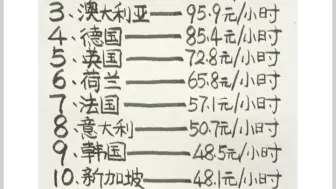 3、澳大利亚——95.9元/小时
4、德国——85.4元/小时
5、英国——72.8元/小时
6、荷兰——65.8元/小时
7、法国——57.1元/小时
8、意大利——50.7元/小时
9、韩国——48.5元/小时
10、新加坡——48.1元/小时